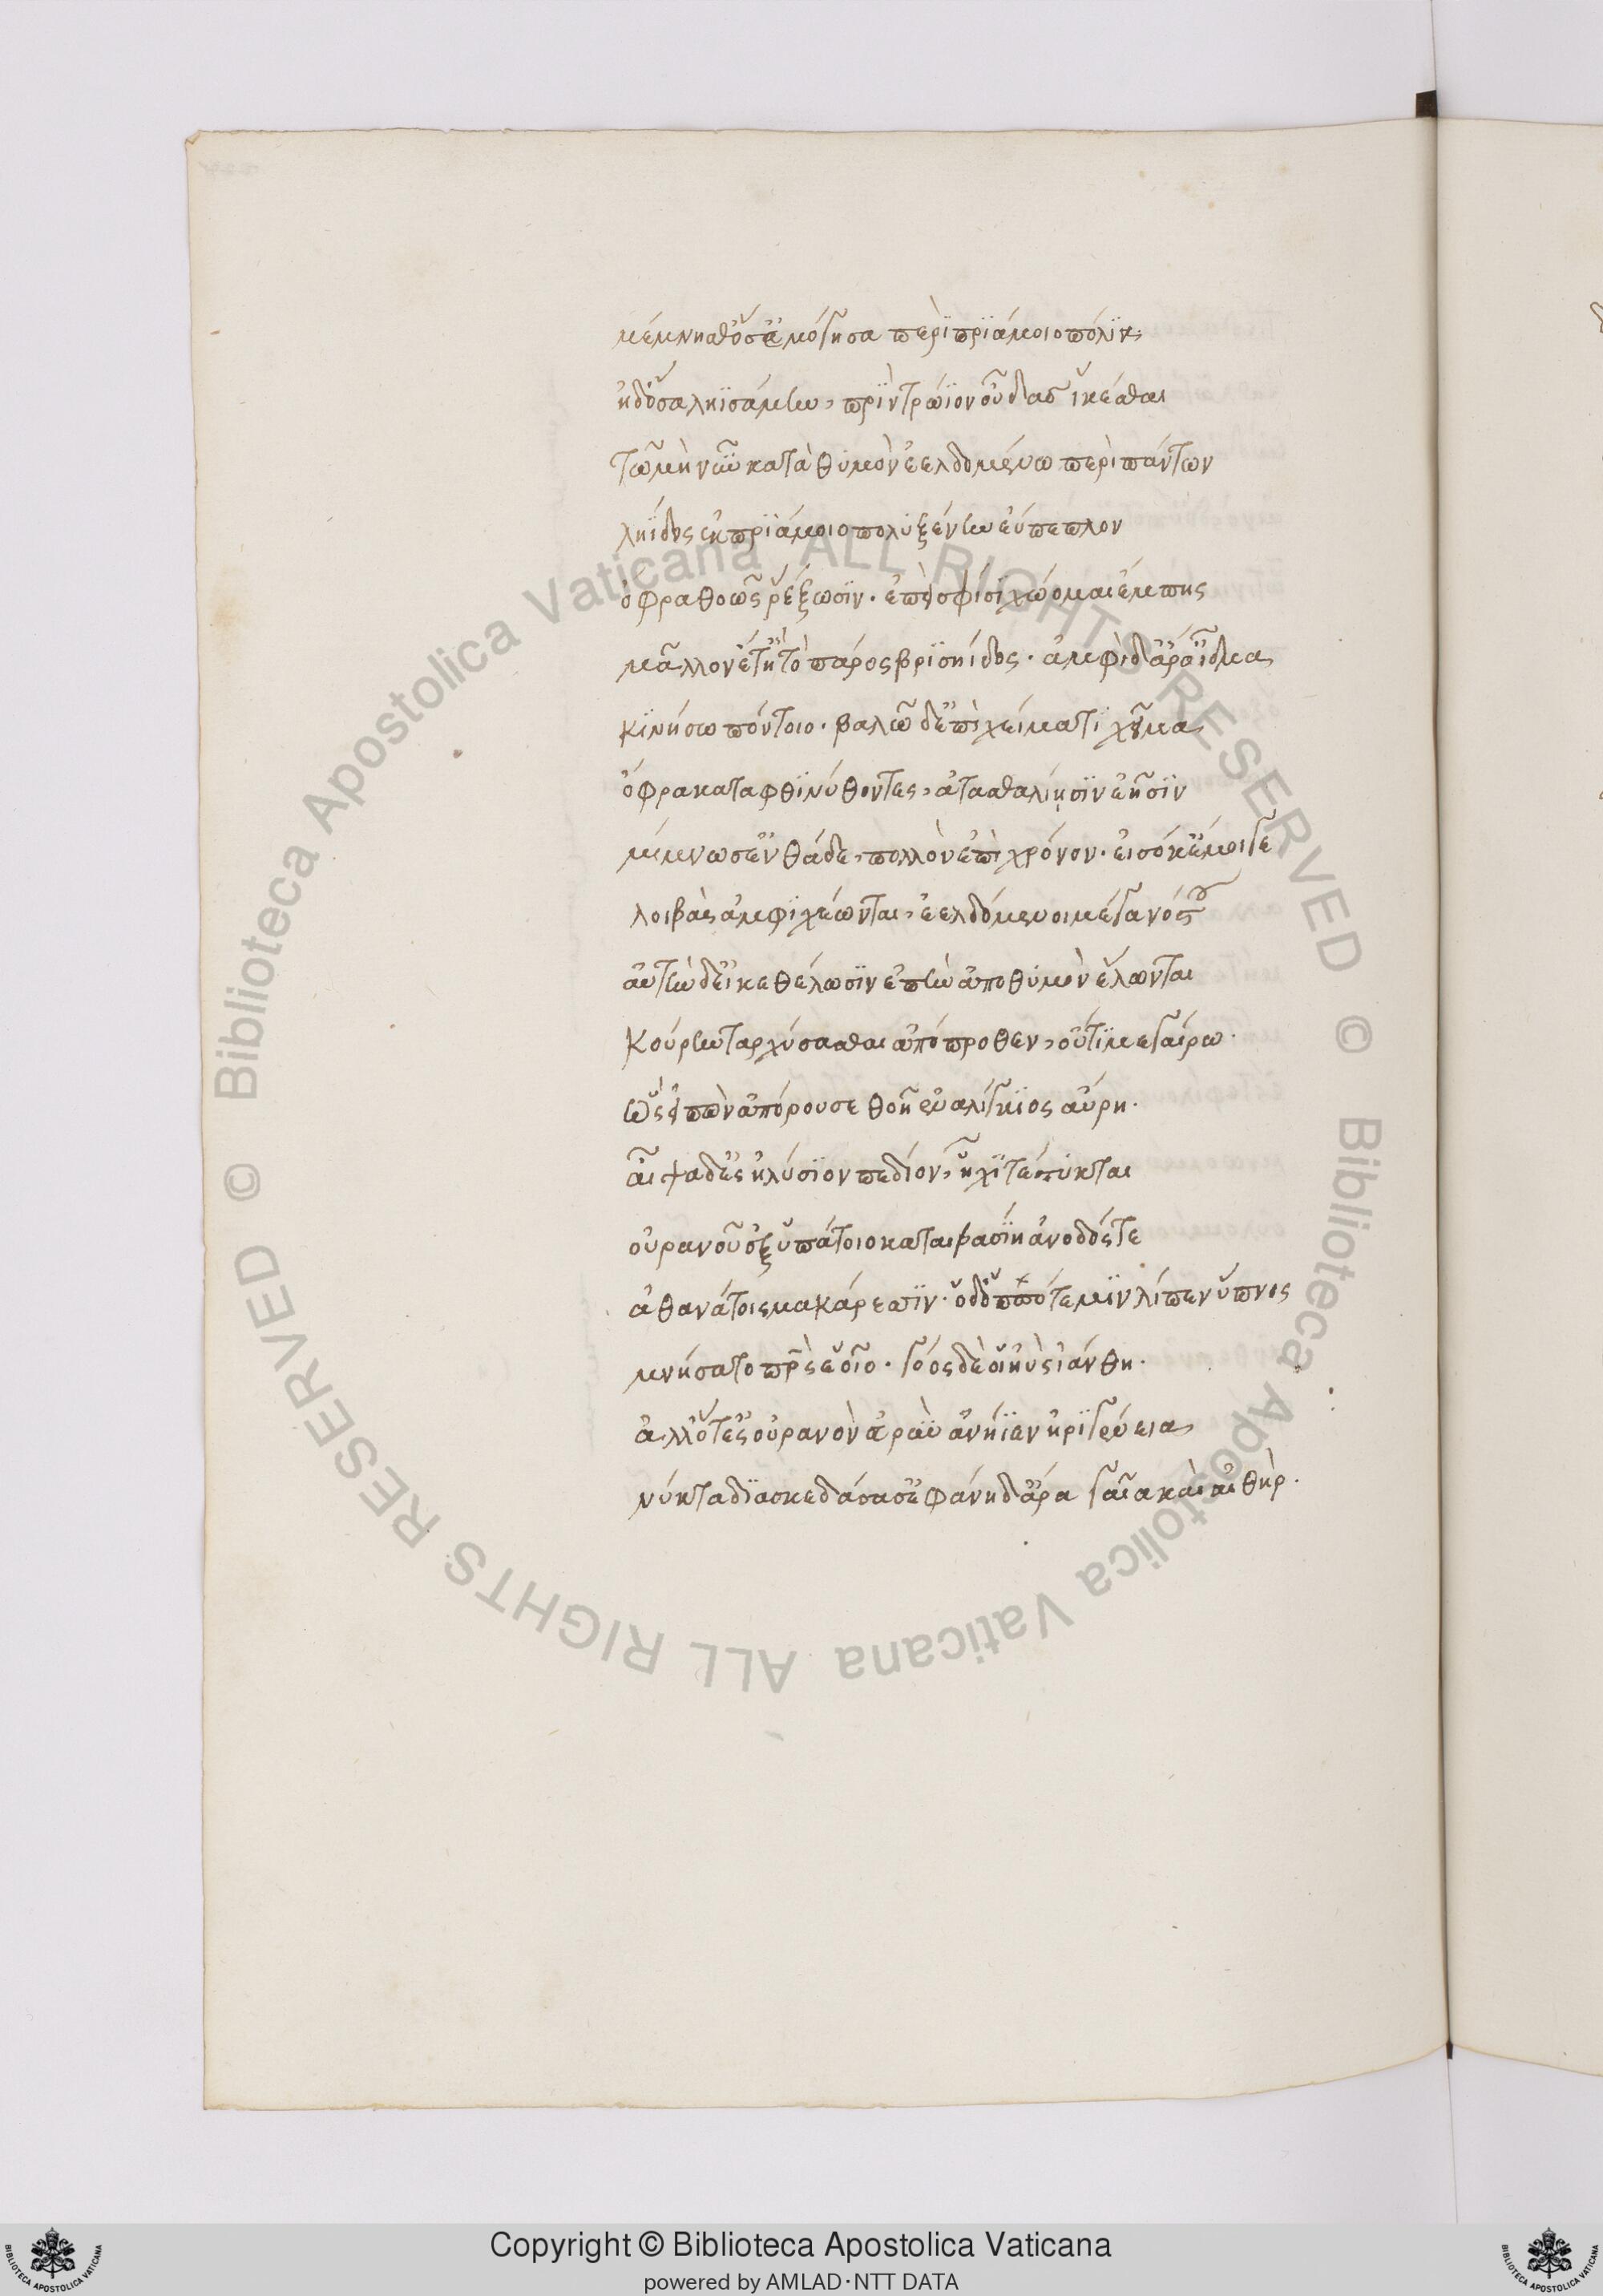 μέμνησθ' ὅσσ' ἐμόγησα περὶ πριάμοιο πόληι,
ἠδ' ὅσα ληισάμην, πρὶν τρώιον οὖδας ἱκέσθαι
τῶ μὴ νῦν κατὰ θυμὸν ἐελδομένω περιπάντων
ληίδος ἐκ πριάμοιο πολυξένην εὔπεπλον
ὄφρα θοῶς ῥέξωσιν. ἐπεὶ σφίσι χώομαι ἔμπης
μᾶλλον ἔτ' ἢ τὸ πάρος βρισηίδος. ἀμφὶ δ' ἄρ' οἶδμα
κινήσω πόντοιο. βαλῶ δ' ἐπὶ χείματι χεῖμα
ὄφρα καταφθινύθοντες, ἀτασθαλίῃσιν ἑῇσιν
μίμνωσ' ἐνθάδε, πολλὸν ἐπὶ χρόνον. εἰσόκ' ἔμοιγε
λοιβὰς ἀμφιχέωνται, ἐελδόμενοι μέγα νόστου
αὐτὴν δ' εἴ κε θέλωσιν ἐπὴν ἀπὸ θυμὸν ἕλωνται
κούρην ταρχύσασθαι ἀπόπροθεν, οὔτι μεγαίρω.
ὣς εἰπὼν ἀπόρουσε θοῇ ἐναλίγκιος αὔρῃ.
αἶψα δ' ἐς ἠλύσιον πεδίον, ἧχι τέτυκται
οὐρανοῦ ἐξ ὑπάτοιο καταιβασίη ἄνοδός τε
ἀθανάτοις μακάρεσσιν. ὁ δ' ὁππότε μιν λίπεν ὕπνος
μνήσατο πρὸς ἑοῖο. νόος δέ οἱ ἠὺς ἰάνθη.
ἀλλ' ὅτ' ἐς οὐρανὸν εὐρὺν ἀνήιεν ἠριγένεια,
νύκτα διασκεδάσασ' ἐφάνη δ' ἄρα γαῖα καὶ αἰθήρ.
Copyright © Biblioteca Apostolica Vaticana
powered by AMLAD·NTT DATA